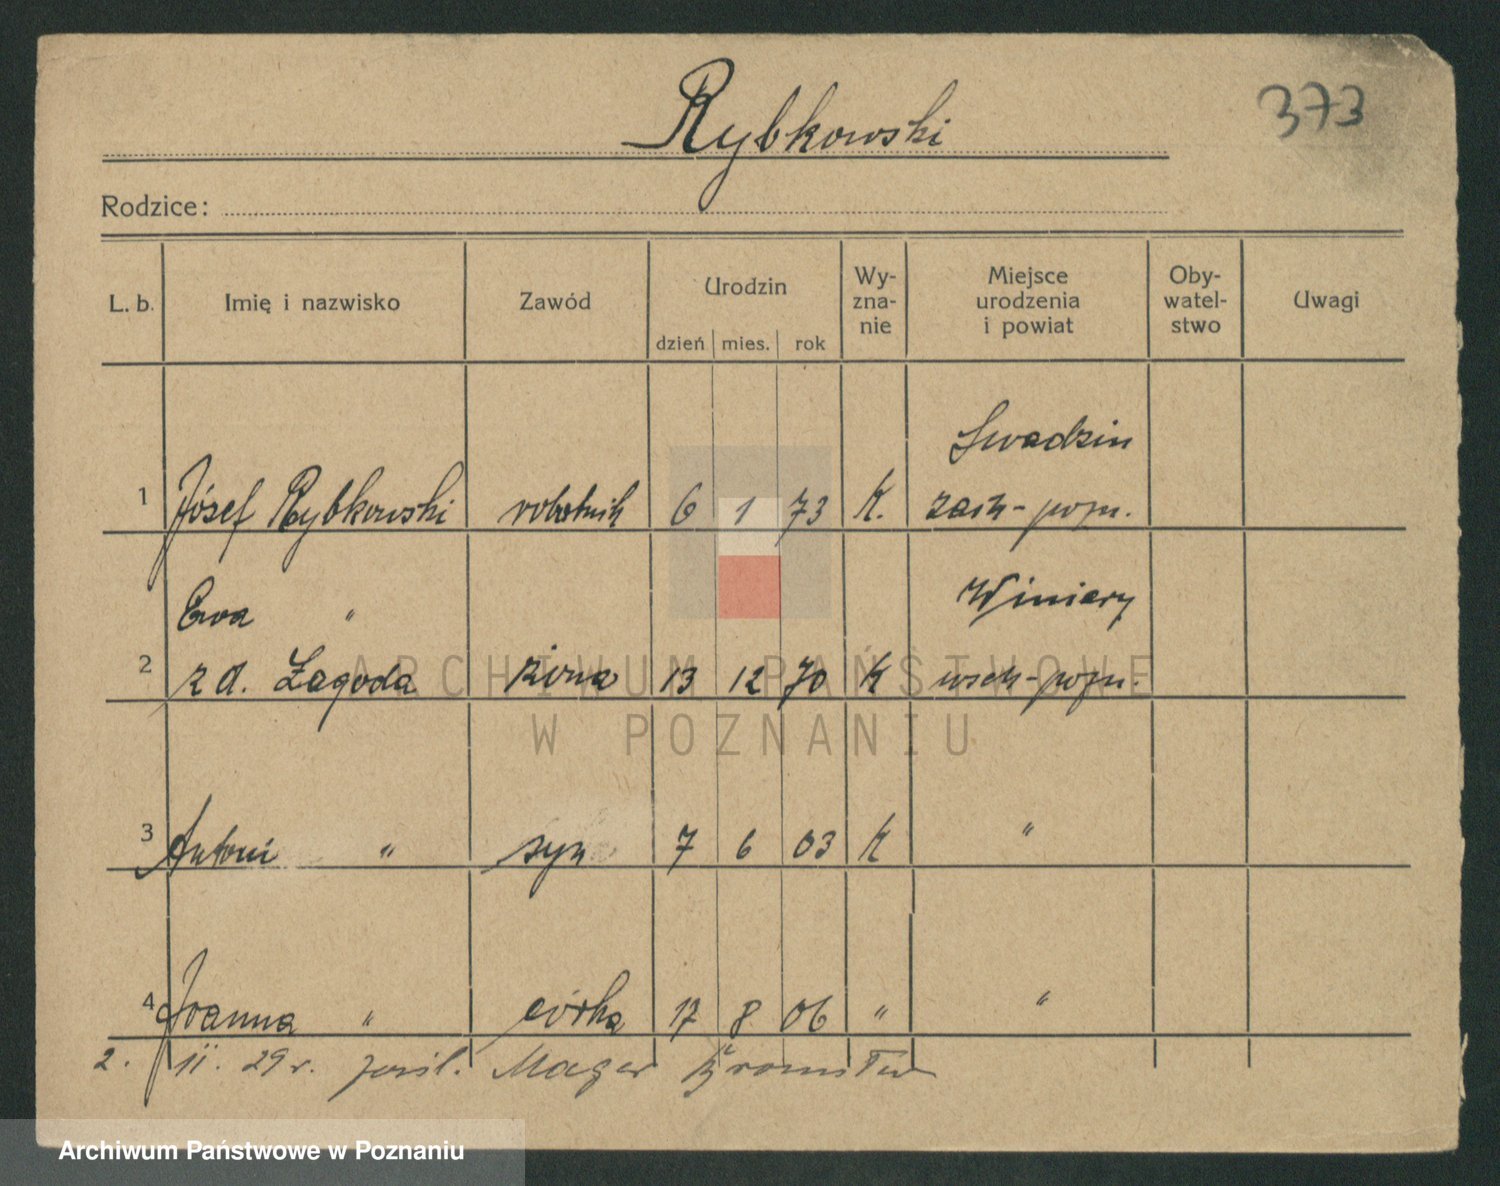 373
Rybkowski
Rodzice:
L. b. Imię i nazwisko Zawód Urodzin Wy-zna-nie Miejsce urodzenia i powiat Oby-watel-stwo Uwagi
dzień mies. rok
Swadzim
1 Józef Rybkowski robotnik 6 1 73 K. zach-pozn.
Ewa " Winiary
2 z d. Żagoda żona 13 12 70 K wsch-pozn.
ARCHIWUM PAŃSTWOWE
W POZNANIU
3 Antoni " syn 7 6 03 K "
4 Joanna " córka 17 8 06 " "
2. II. 29 r.
Archiwum Państwowe w Poznaniu